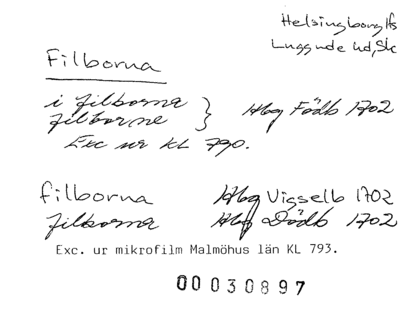 Helsingborg lfs
Luggude hd, Sk
Filborna
i filborna
filborne } Hbg Födb 1702
Exc ur KL 790.
filborna Hbg Vigselb 1702
filborna Hbg Dödb 1702
Exc. ur mikrofilm Malmöhus län KL 793.
00030897